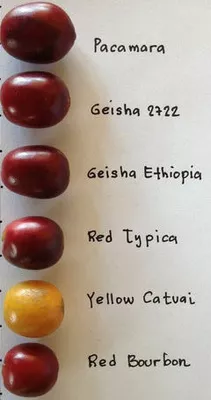 Pacamara
Geisha 2722
Geisha Ethiopia
Red Typica
Yellow Catuai
Red Bourbon